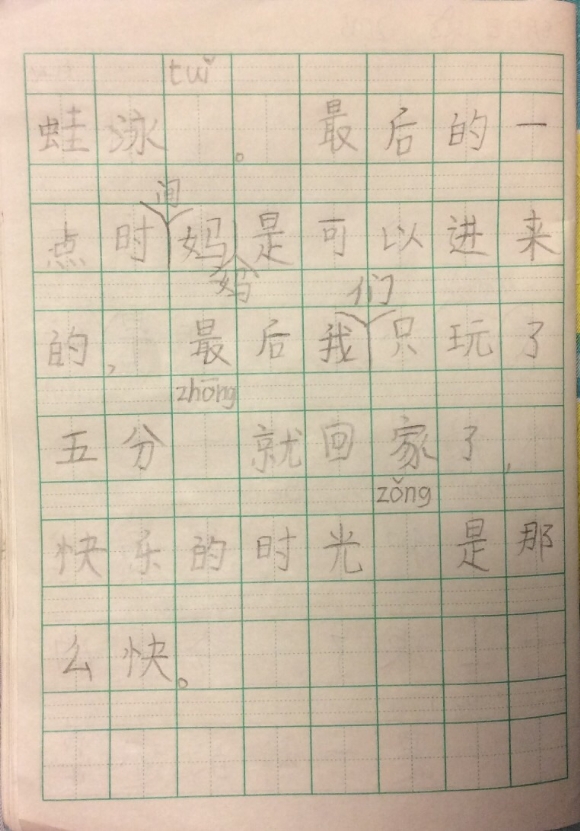 蛙泳tuǐ。最后的一
点时间妈妈是可以进来
的，最后我们只玩了
五分zhōng就回家了，
快乐的时光zǒng是那
么快。